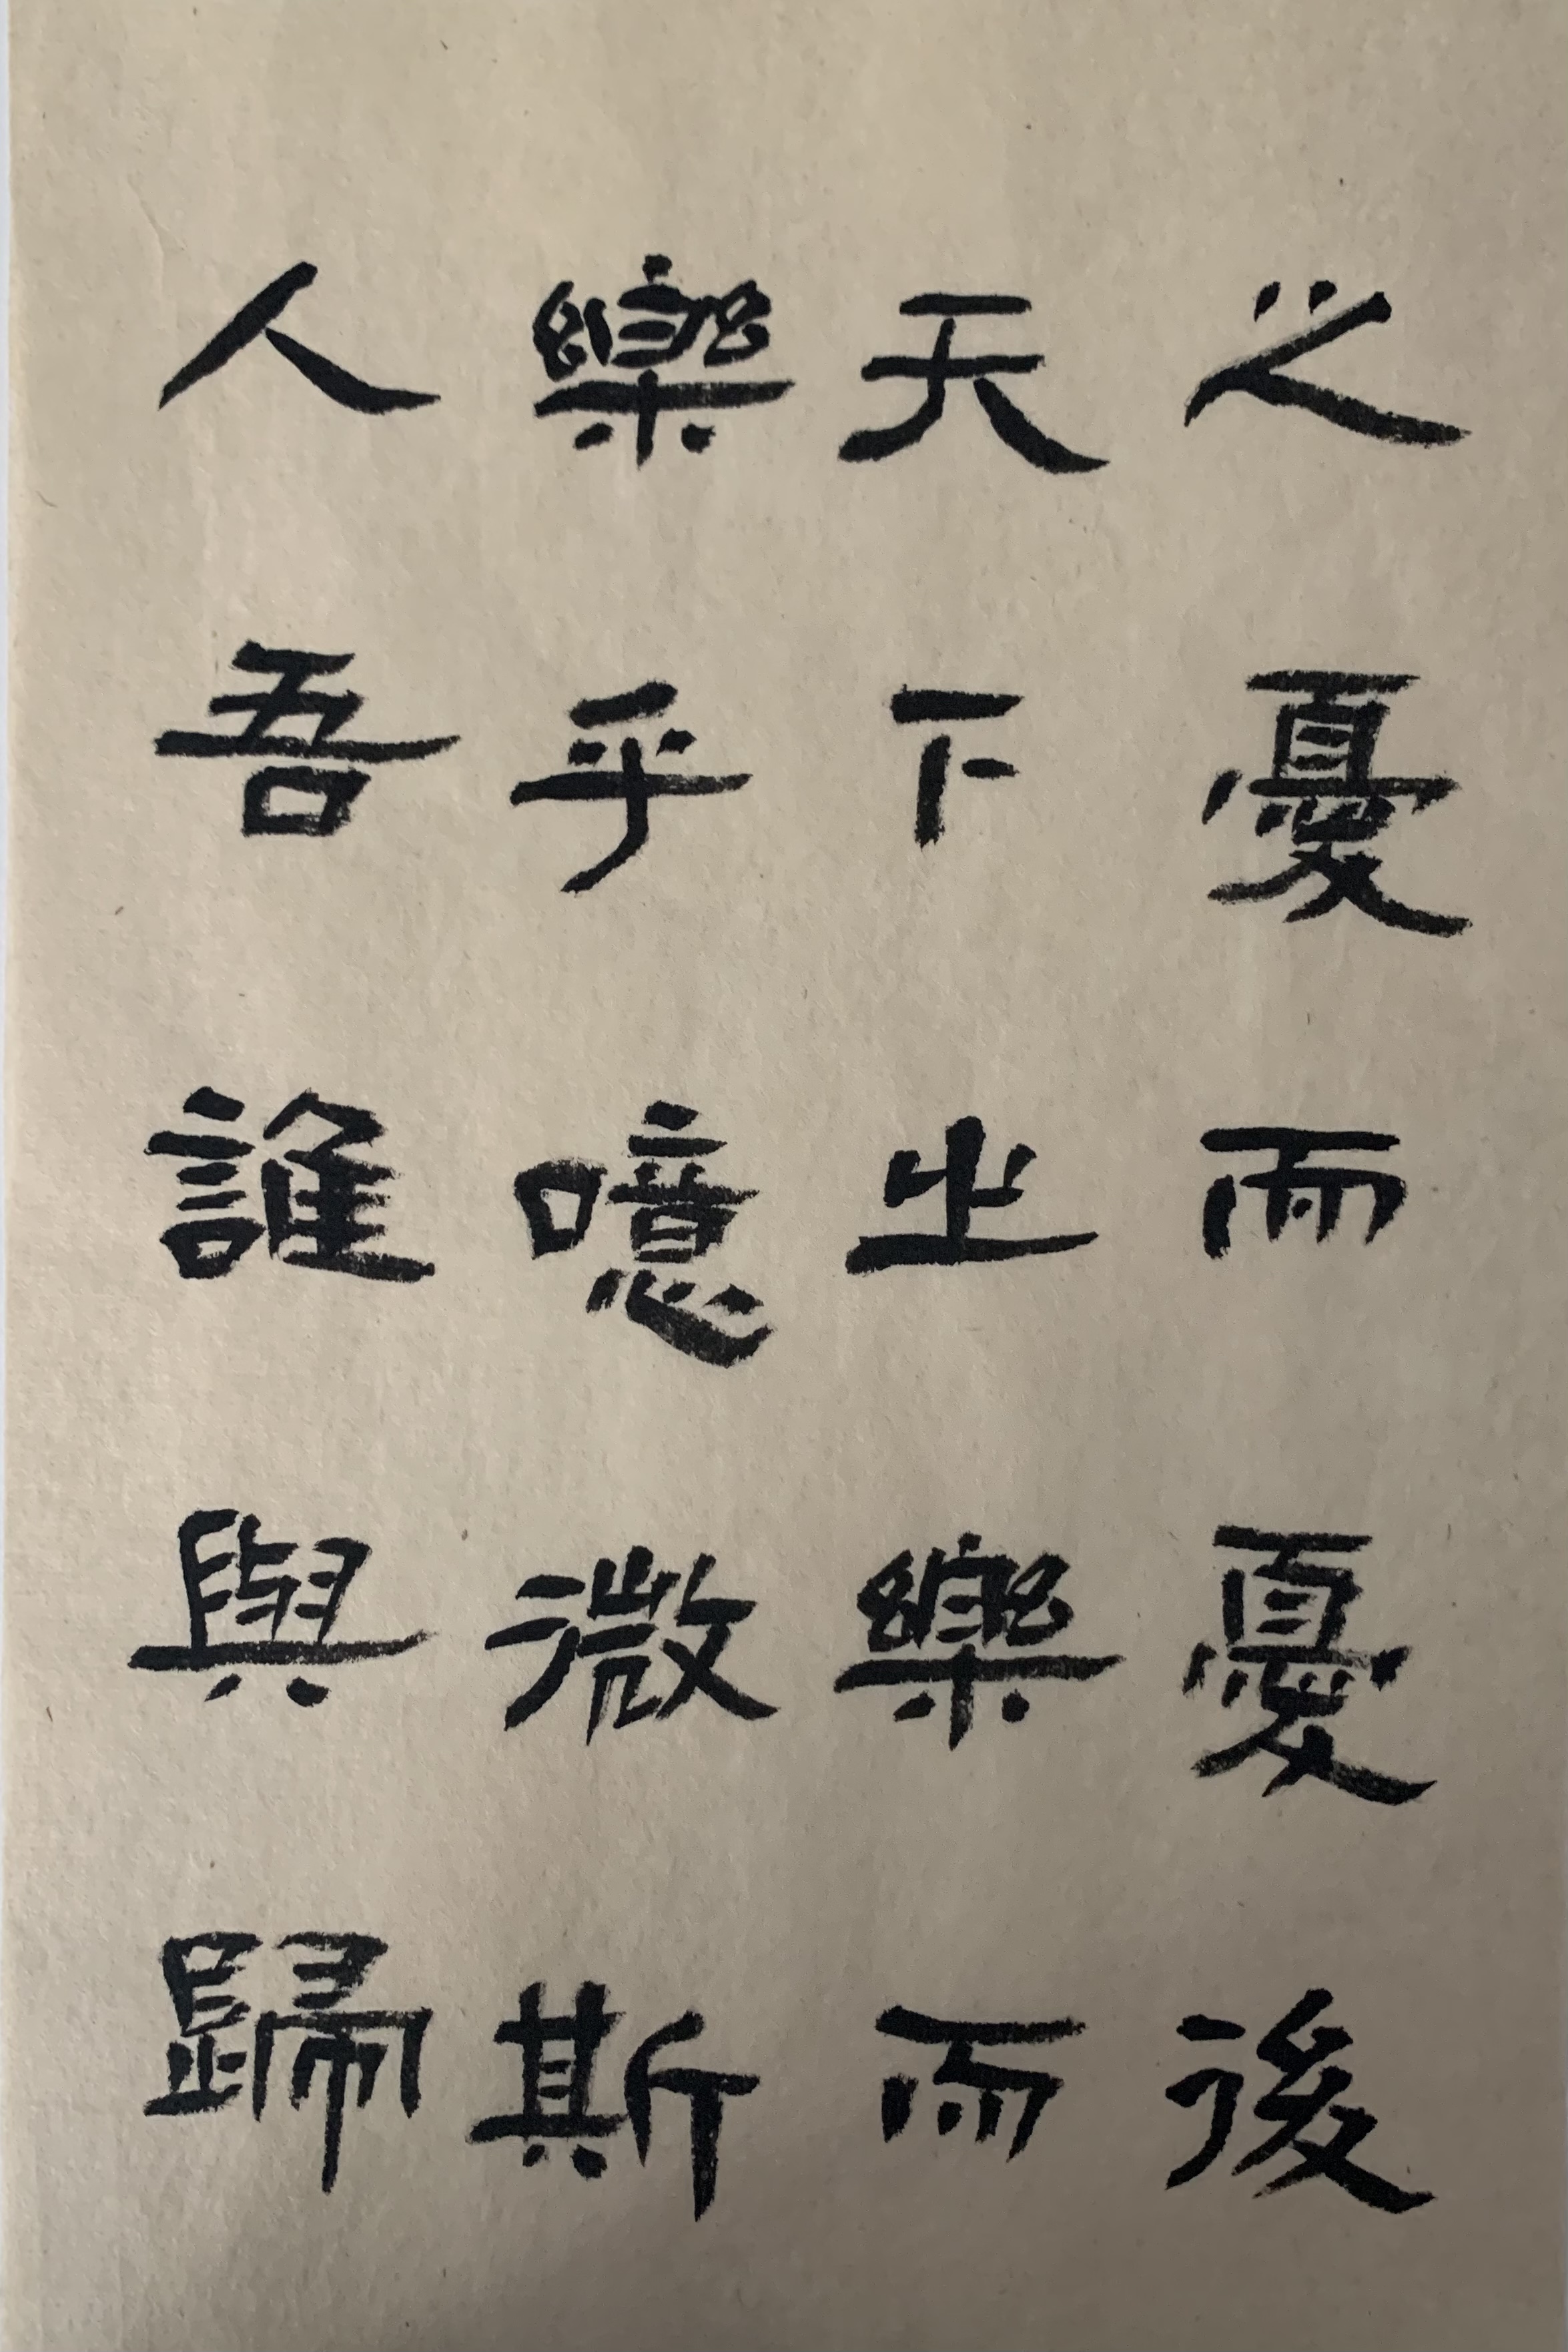 之憂而憂後
天下之樂而
樂乎噫微斯
人吾誰與歸